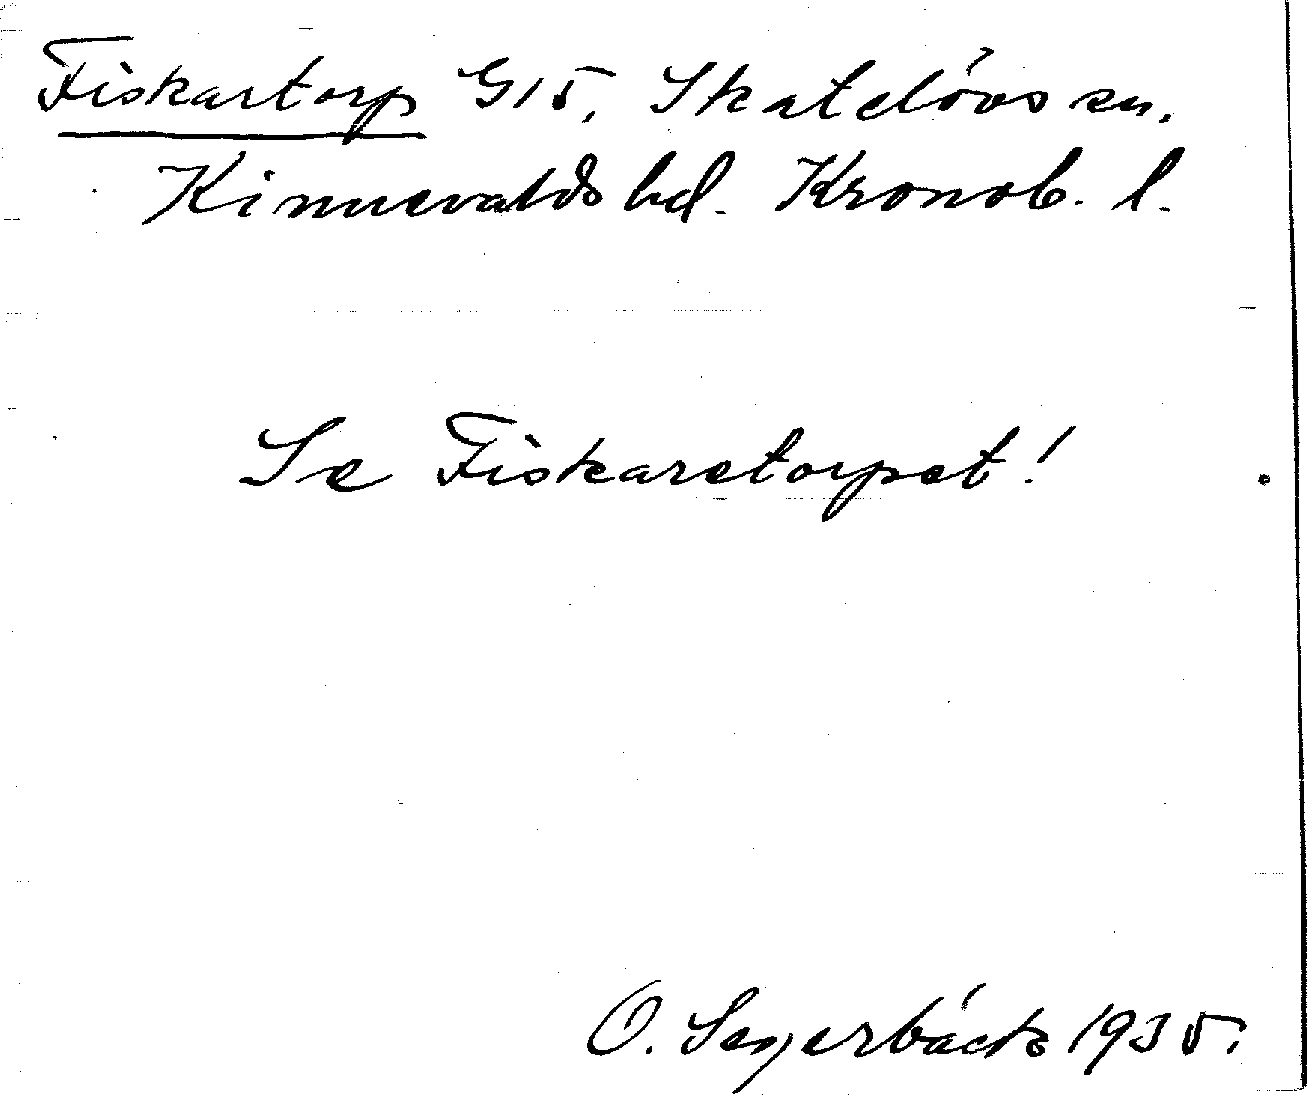 Fiskartorp G15, Skatelövs sn.
Kinnevalds hd. Kronob. l.
Se Fiskaretorpet!
O. Segerbäck 1935.